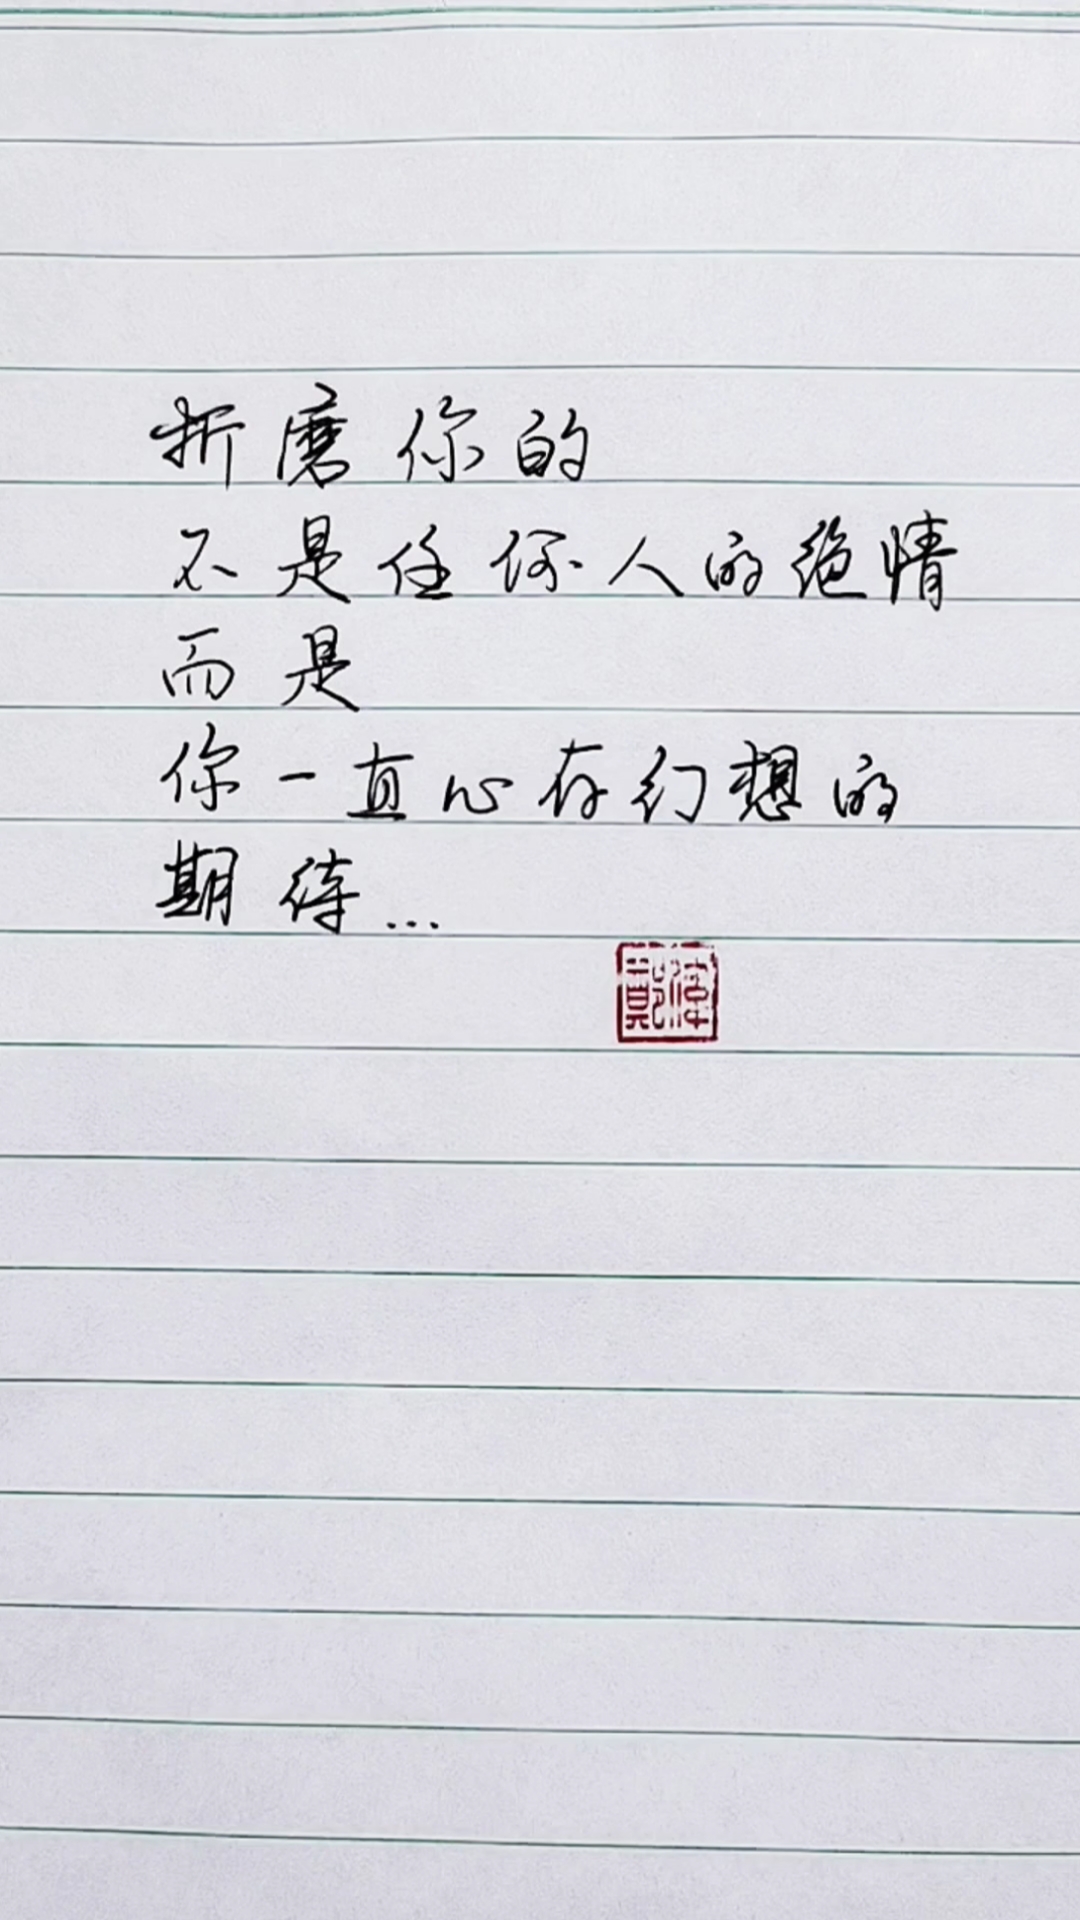 折磨你的
不是任何人的绝情
而是
你一直心存幻想的
期待...